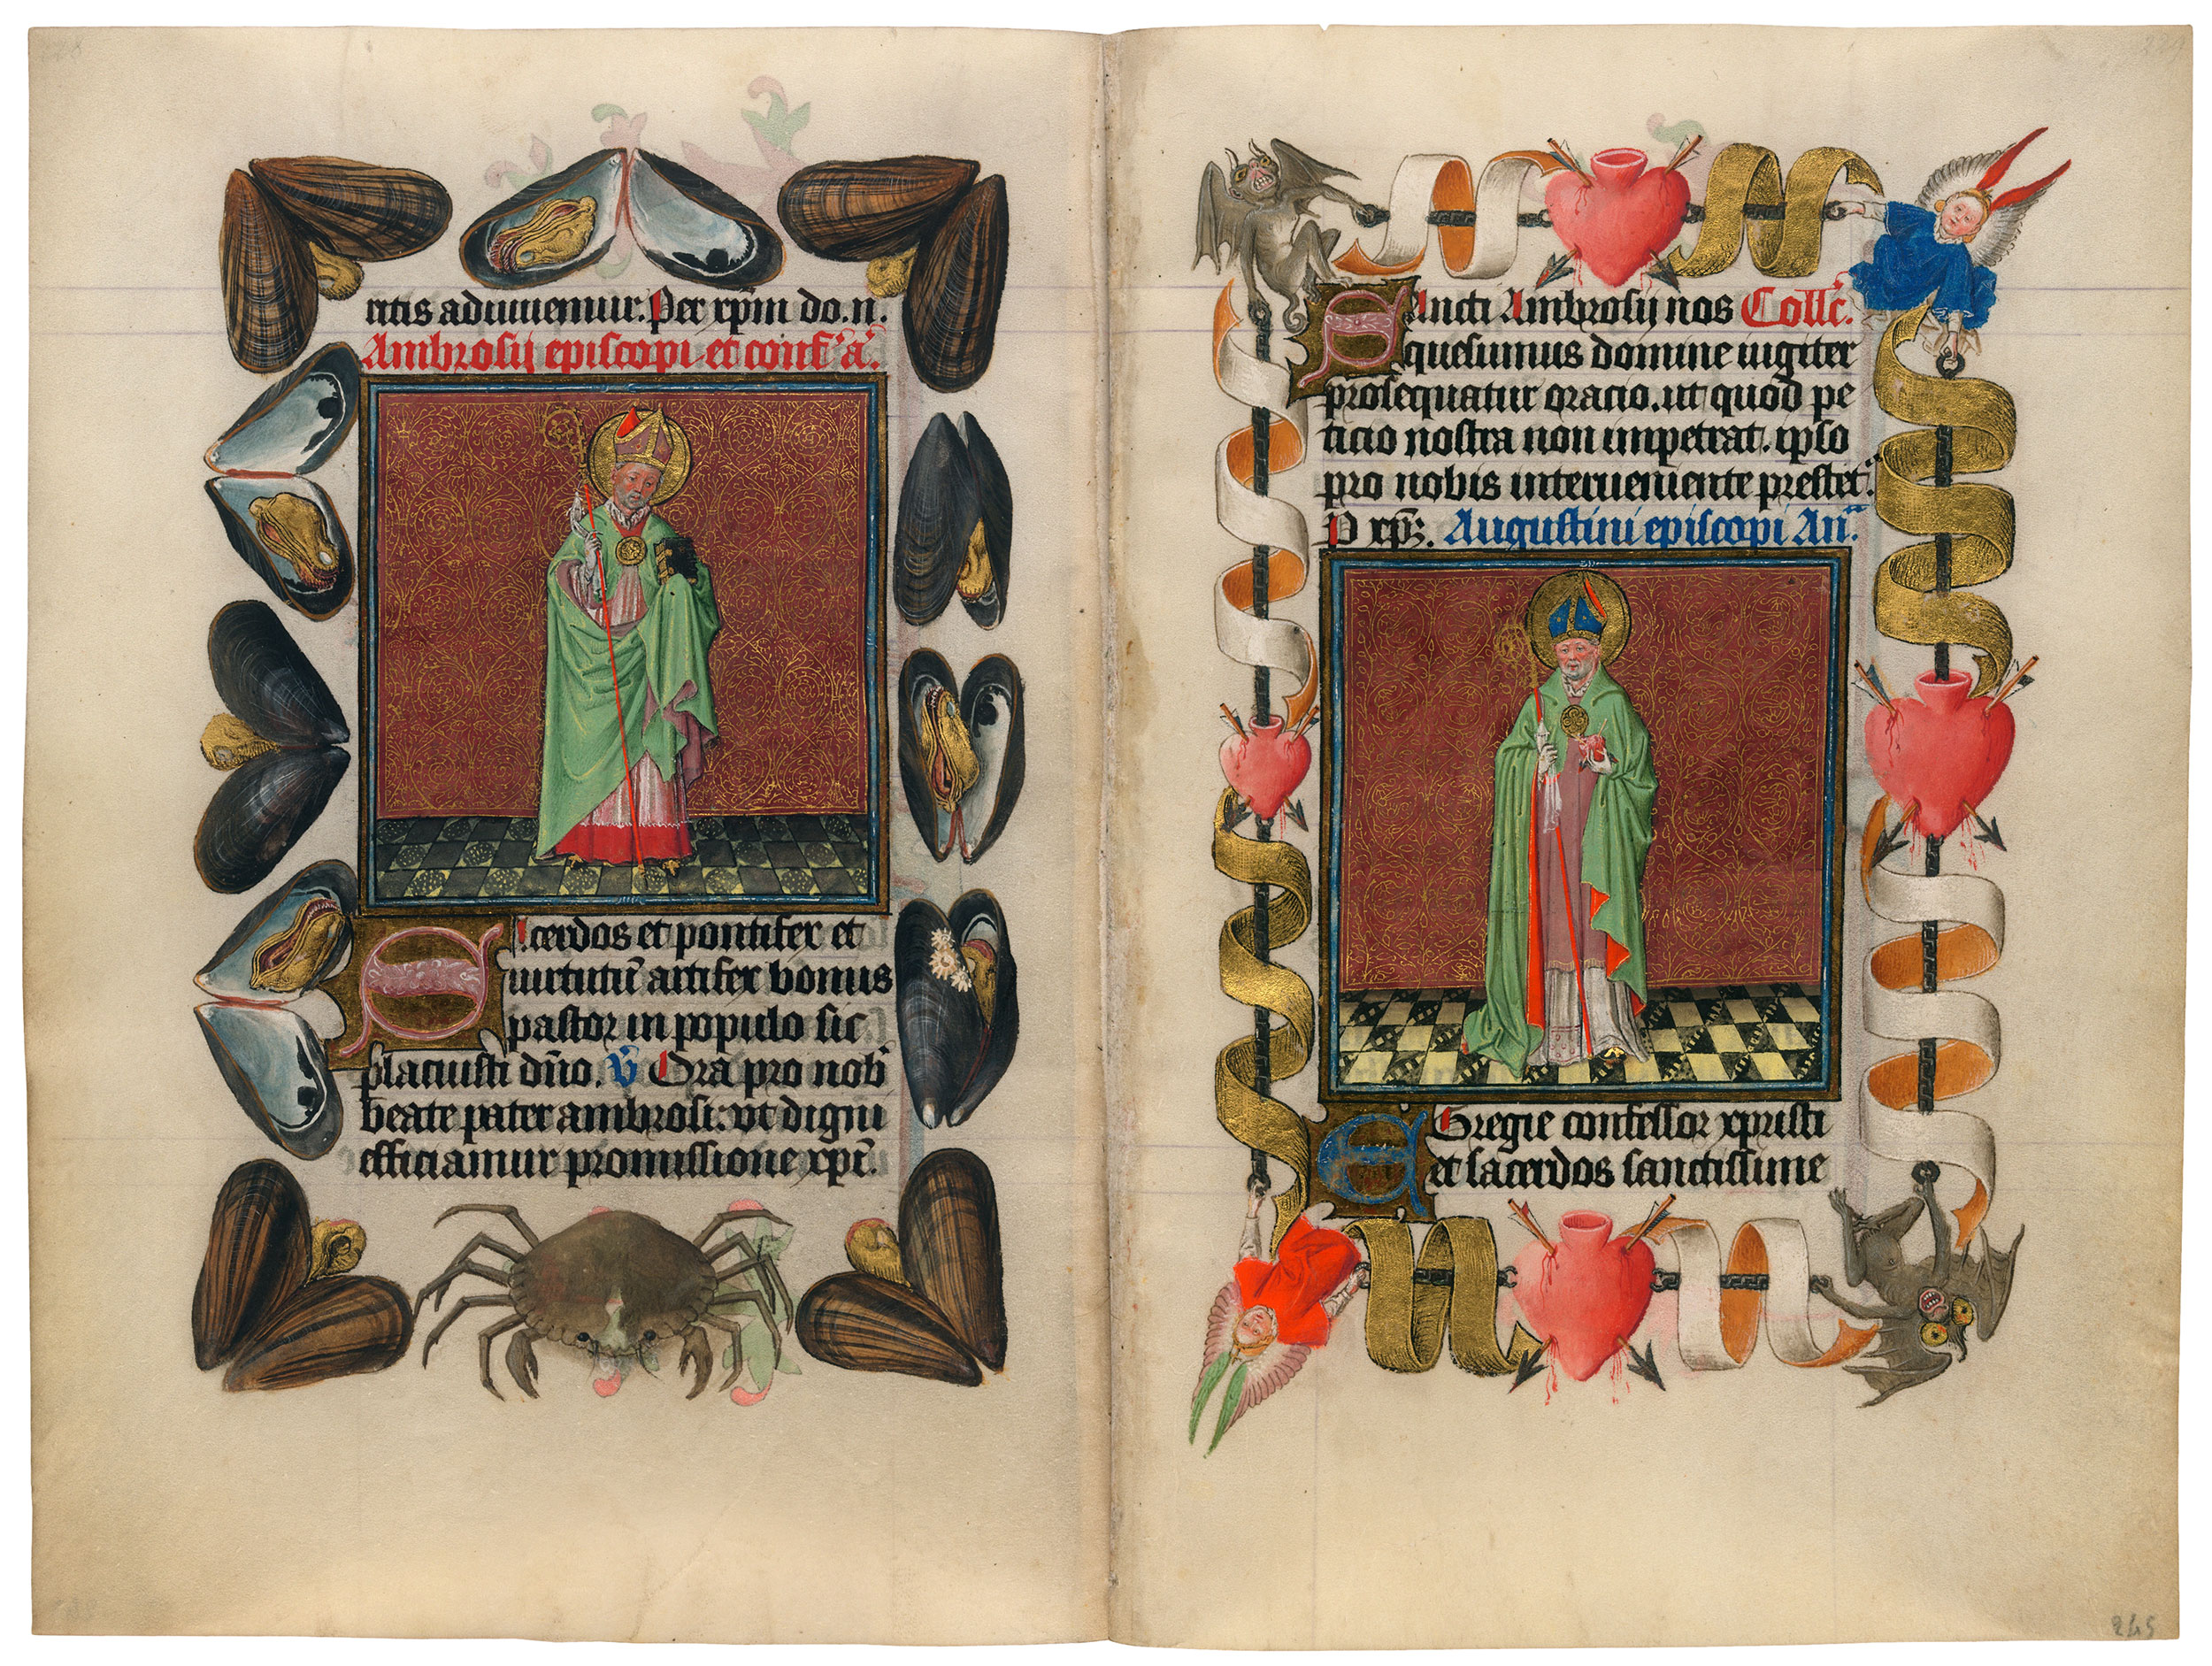 ritis adiuvemur. Per xpm do.n.
Ambrosij episcopi et conf' a'.
Sacerdos et pontifex et
uirtutu artifex bonus
pastor in populo sic
placuisti dno. V Ora pro nob'
beate pater ambrosi: ut digni
efficiamur promissione xpi.
Sancti Ambrosij nos Coll'c.
quesumus domine iugiter
prosequatur oracio. ut quod pe
ticio nostra non impetrat. ipso
pro nobis interueniente prestet'.
P xpz. Augustini episcopi An'.
EGregie confessor xpristi
et sacerdos sanctissime
245